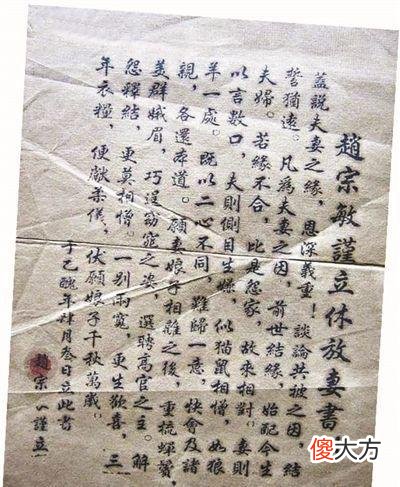 趙宗敏謹立休放妻書
蓋説夫妻之緣，恩深義重！談論共被之因，結
誓猶遠。凡為夫妻之因，前世結緣，始配今生
夫婦。若緣不合，比是怨家，故來相對。妻則
以言數口，夫則側目生嫌，似猫鼠相憎，如狼
羊一處。既以二心不同，難歸一意，快會及諸
親，各還本道。願妻娘子相離之後，重梳蟬鬢，
美群娥眉，巧逞窈窕之姿，選聘高官之主。解
怨釋結，更莫相憎。一别兩寬，更生歡喜，三
年衣糧，便獻柔儀。伏願娘子千秋萬歲。
于乙醜年肆月叁日立此書
趙宗 謹立
傻大方